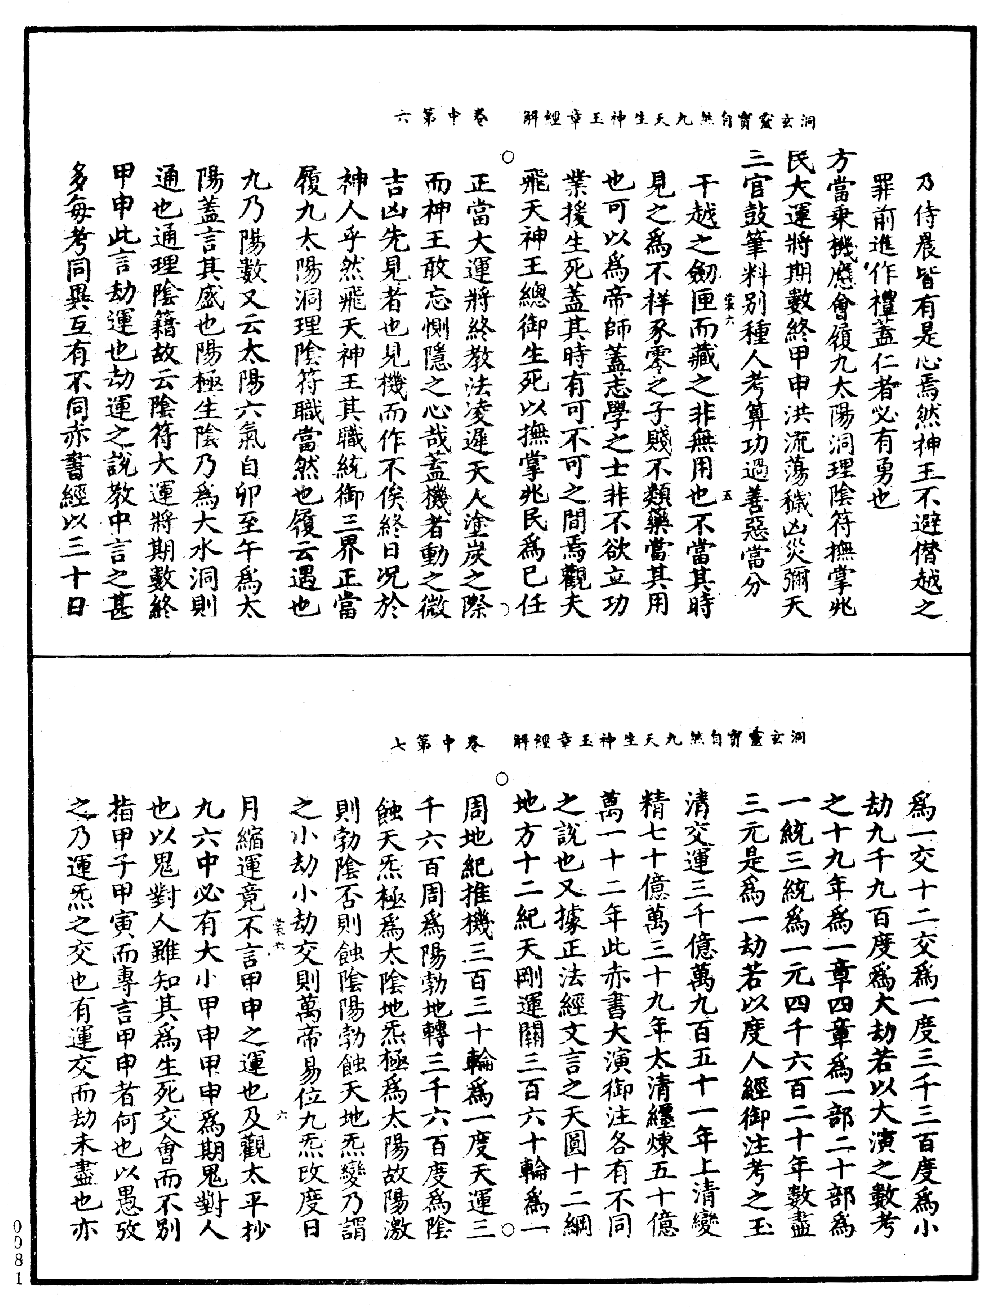 洞玄靈寶自然九天生神玉章經解　卷中第六
乃侍晨皆有是心焉然神王不避僭越之
罪前進作禮蓋仁者必有勇也
方當乘機應會履九太陽洞理陰符撫掌兆
民大運將期數終甲申洪流蕩穢凶災彌天
三官鼓筆料別種人考算功過善惡當分
干越之劒匣而藏之非無用也不當其時
見之為不祥豕零之子賤不類藥當其用
也可以為帝師蓋志學之士非不欲立功
業援生死蓋其時有可不可之間焉觀夫
飛天神王總御生死以撫掌兆民為已任
正當大運將終教法凌遲天人塗炭之際
而神王敢忘惻隱之心哉蓋機者動之微
吉凶先見者也見機而作不俟終日況於
神人乎然飛天神王其職統御三界正當
履九太陽洞理陰符職當然也履云遇也
九乃陽數又云太陽六氣自卯至午為太
陽蓋言其盛也陽極生陰乃為大水洞則
通也通理陰籍故云陰符大運將期數終
甲申此言劫運也劫運之說教中言之甚
多每考同異互有不同亦書經以三十日
洞玄靈寶自然九天生神玉章經解　卷中第七
為一交十二交為一度三千三百度為小
劫九千九百度為大劫若以大演之數考
之十九年為一章四章為一部二十部為
一統三統為一元四千六百二十年數盡
三元是為一劫若以度人經御注考之玉
清交運三千億萬九百五十一年上清變
精七十億萬三十九年太清纏煉五十億
萬一十二年此亦書大演御注各有不同
之說也又據正法經文言之天圓十二綱
地方十二紀天剛運關三百六十輪為一
周地紀推機三百三十輪為一度天運三
千六百周為陽勃地轉三千六百度為陰
蝕天炁極為太陰地炁極為太陽故陽激
則勃陰否則蝕陰陽勃蝕天地炁變乃謂
之小劫小劫交則萬帝易位九炁改度日
月縮運竟不言甲申之運也及觀太平抄
九六中必有大小甲申甲申為期鬼對人
也以鬼對人雖知其為生死交會而不別
指甲子甲寅而專言甲申者何也以愚攷
之乃運炁之交也有運交而劫未盡也亦
0081